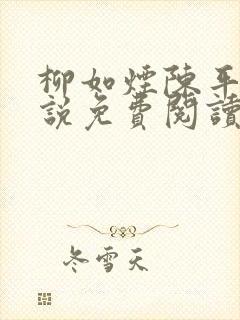 柳如煙陳平
說免費閱讀
冬雪天